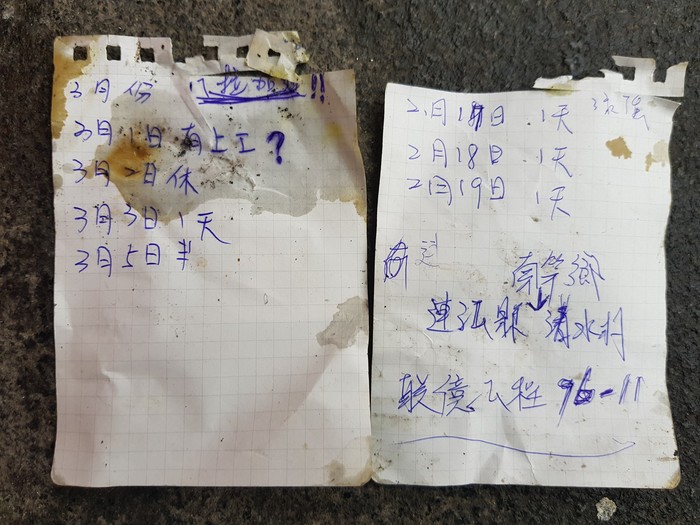 3月份 !!
3月1日有上工?
3月2日休
3月3日1天
3月5日半
2月18日 1天
2月18日 1天
2月19日 1天
南竿鄉
連江縣 清水村
联億工程 96-11